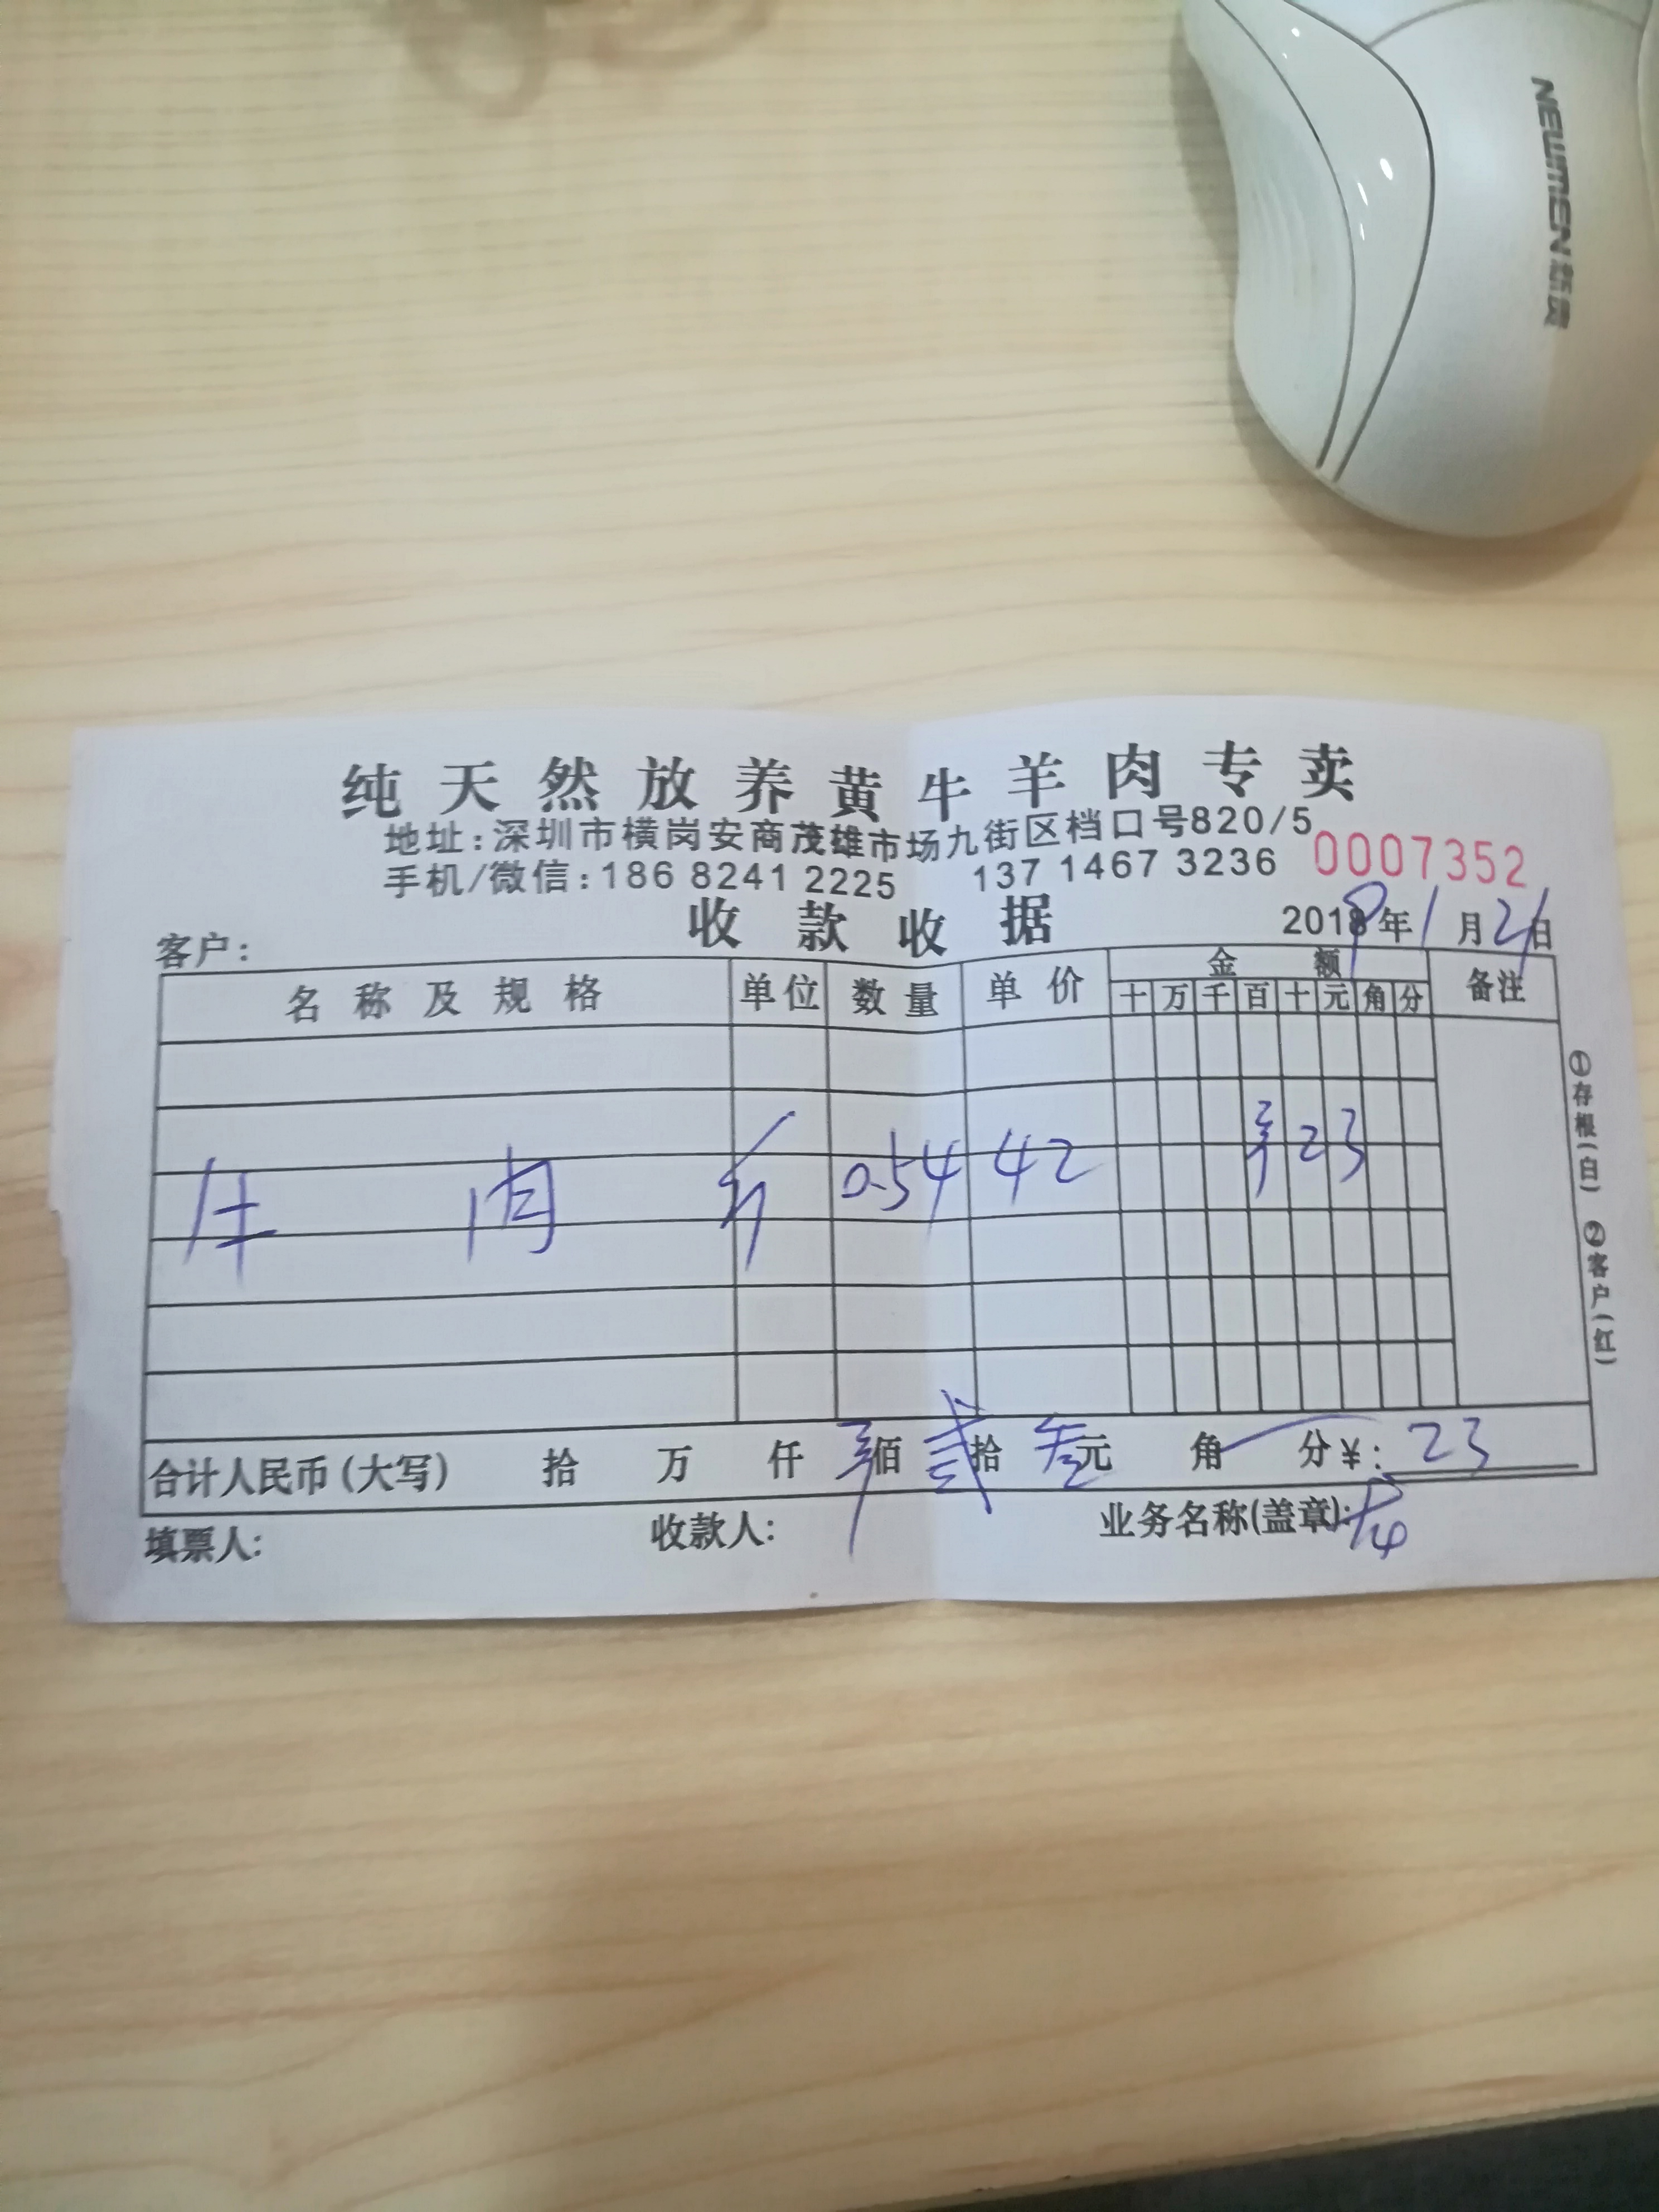 NEWMEN 新贵
纯天然放养黄牛羊肉专卖
地址:深圳市横岗安商茂雄市场九街区档口号820/5
手机/微信:186 8241 2225 137 1467 3236 0007352
收款收据
客户: 2018年1月21日
名称及规格 单位 数量 单价 金额 备注
十 万 千 百 十 元 角 分
牛肉 斤 0.54 42 ¥ 2 3
合计人民币(大写) 拾 万 仟 ¥佰 贰拾 叁元 角 分 ¥: 23
填票人: 收款人: 业务名称(盖章):
①存根(白) ②客户(红)